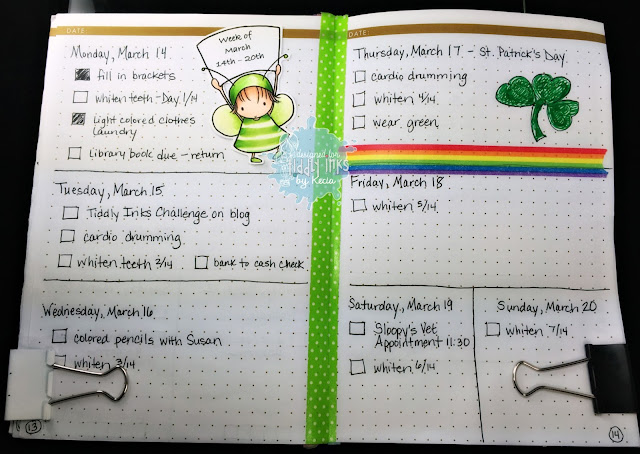 DATE
Week of
March
14th - 20th
Monday, March 14
fill in brackets
whiten teeth - Day 1/14
Light colored clothes
laundry
Library book due - return
Tuesday, March 15
Tiddly Inks Challenge on blog
cardio drumming
whiten teeth 2/14
bank to cash check
Wednesday, March 16
colored pencils with Susan
whiten 3/14
13
DATE:
Thursday, March 17 - St. Patrick's Day
cardio drumming
whiten 4/14
wear green
designed for
Tiddly Inks
by Kecia
Friday, March 18
whiten 5/14
Saturday, March 19
Sloopy's Vet
Appointment 11:30
whiten 6/14
Sunday, March 20
whiten 7/14
14